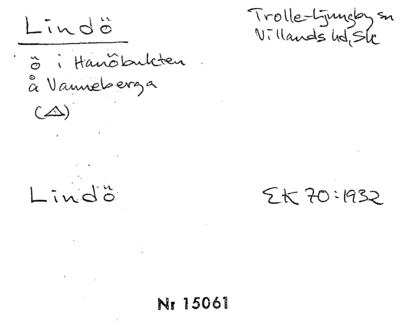 Lindö
Trolle-Ljungby sn
Villands hd, Sk
ö i Hanöbukten
å Vanneberga
(△)
Lindö
EK 70:1932
Nr 15061